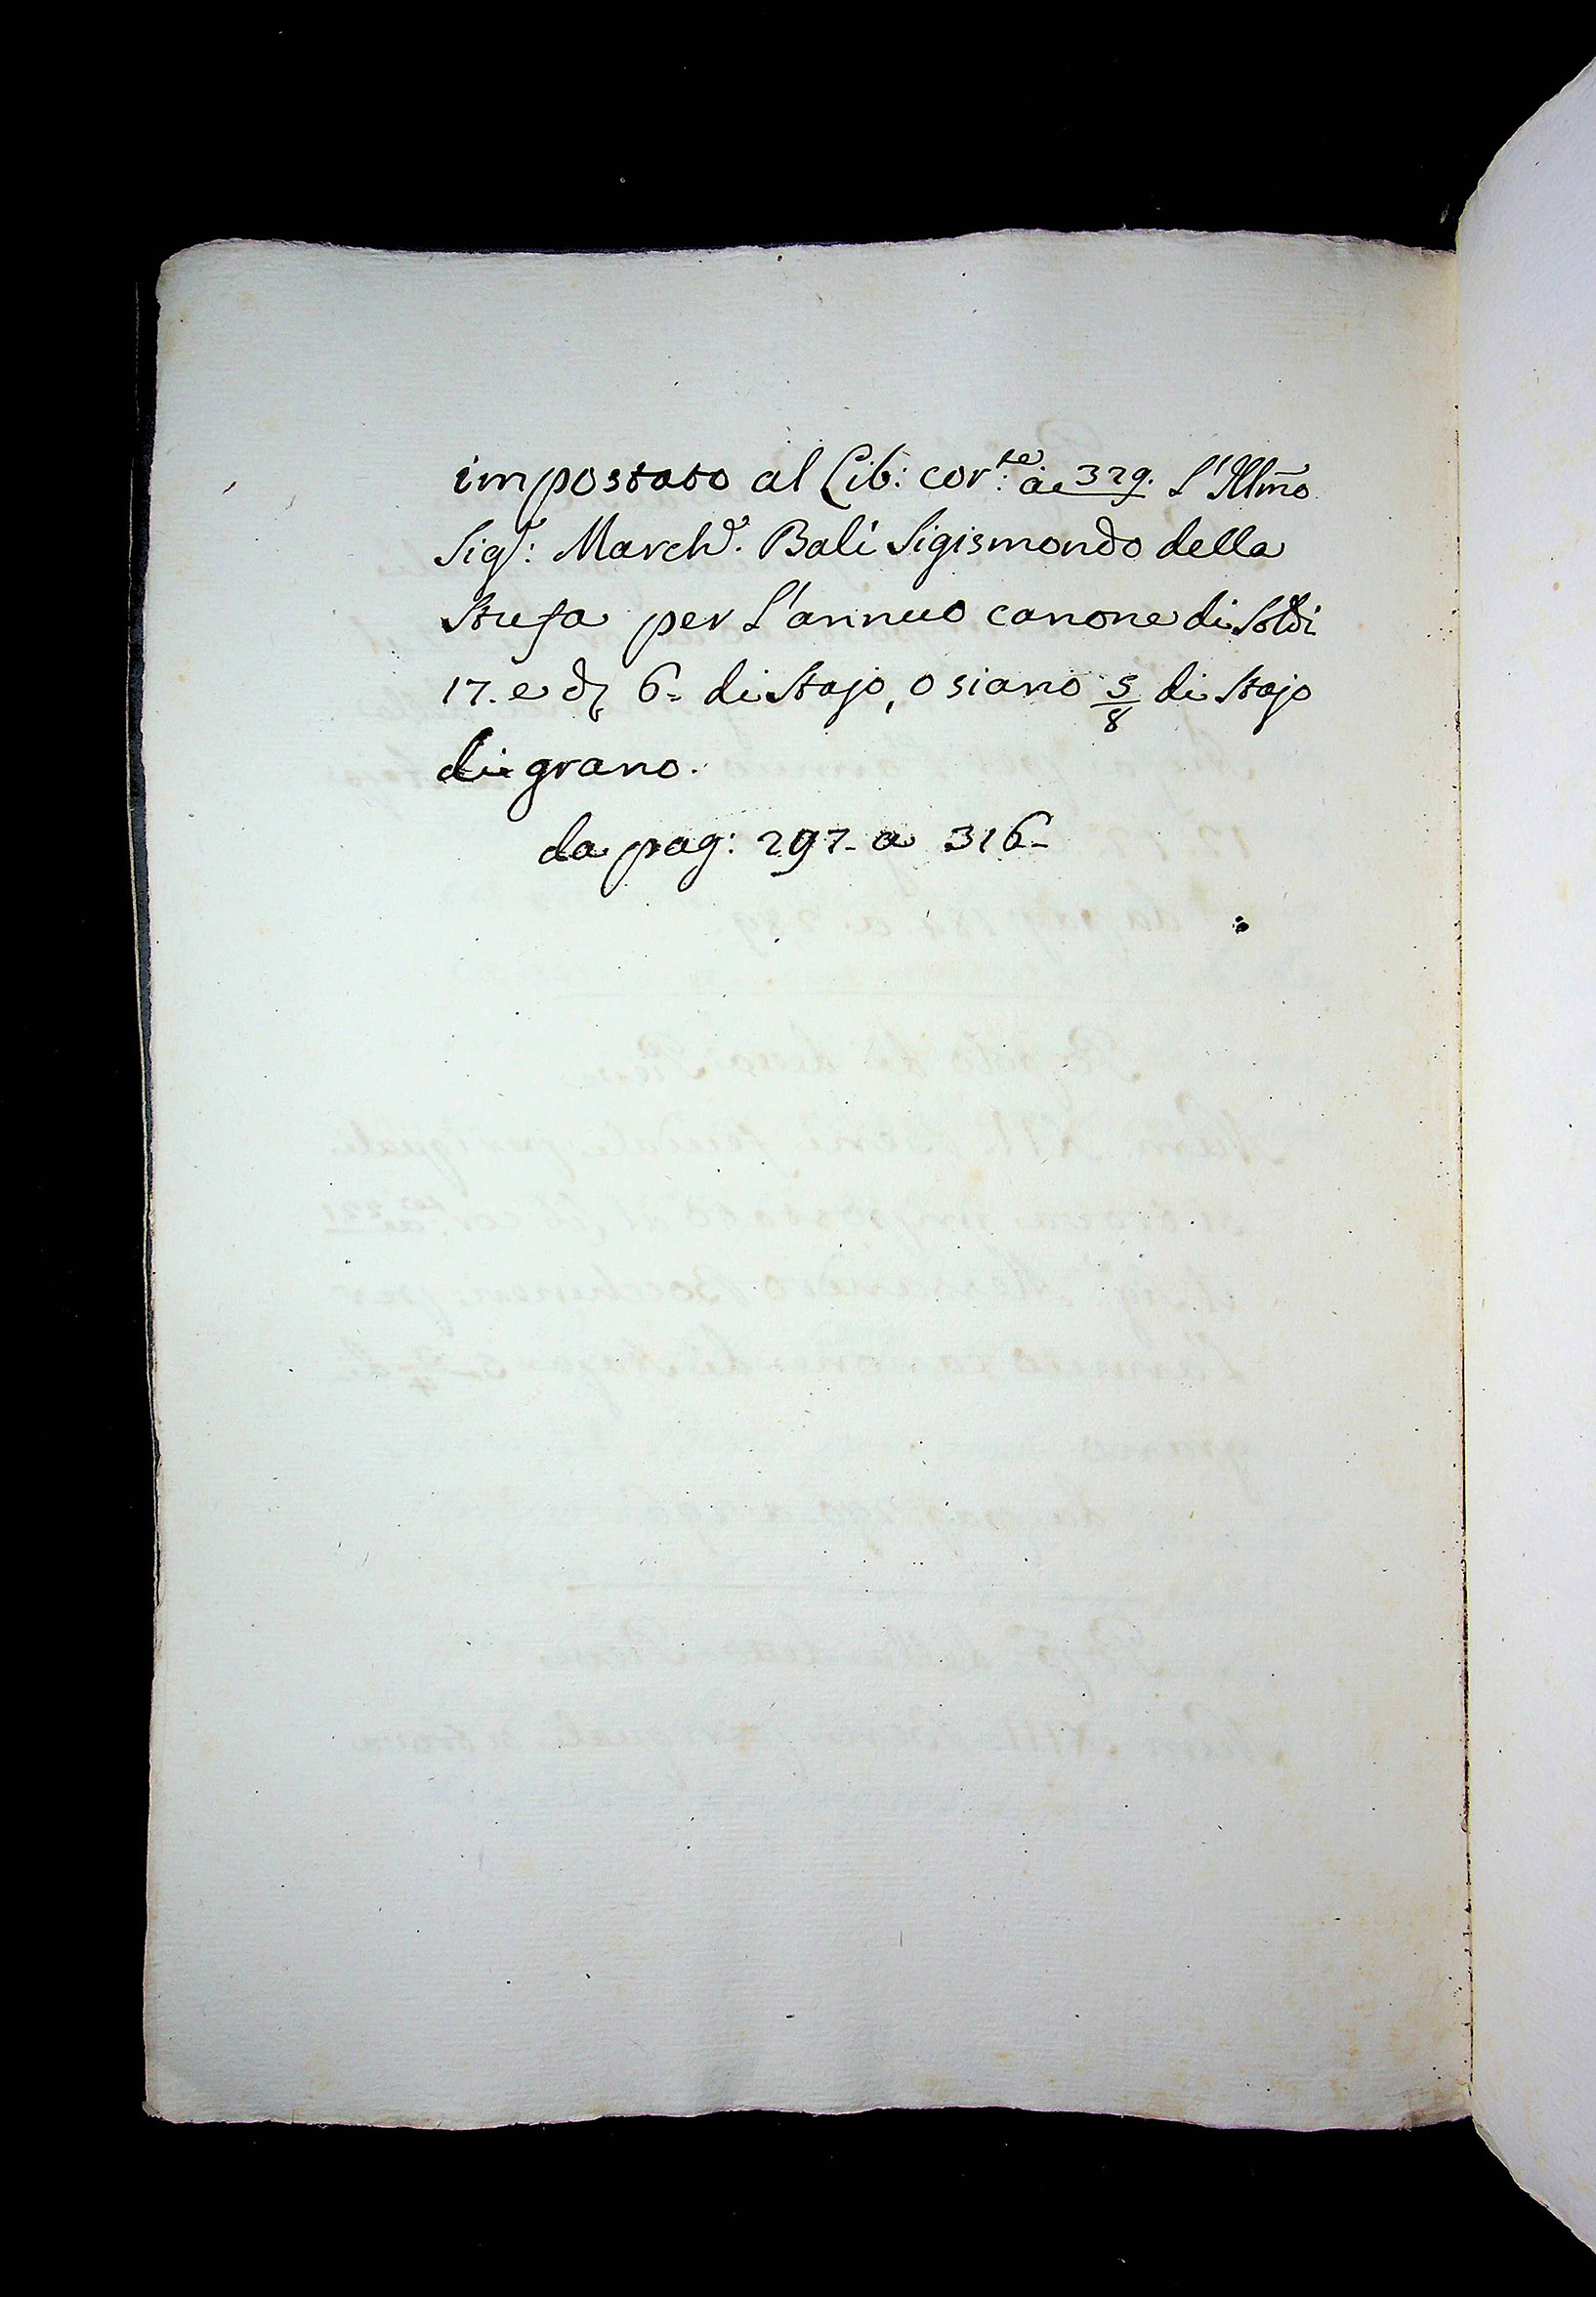 impostato al Lib: cor:te a 329. L'Illmo
Sigr: March. Balì Sigismondo della
Stufa per L'annuo canone di Soldi
17. e d 6= di Stajo, o siano 5/8 di Stajo
di grano.
da pag: 297- a 316-